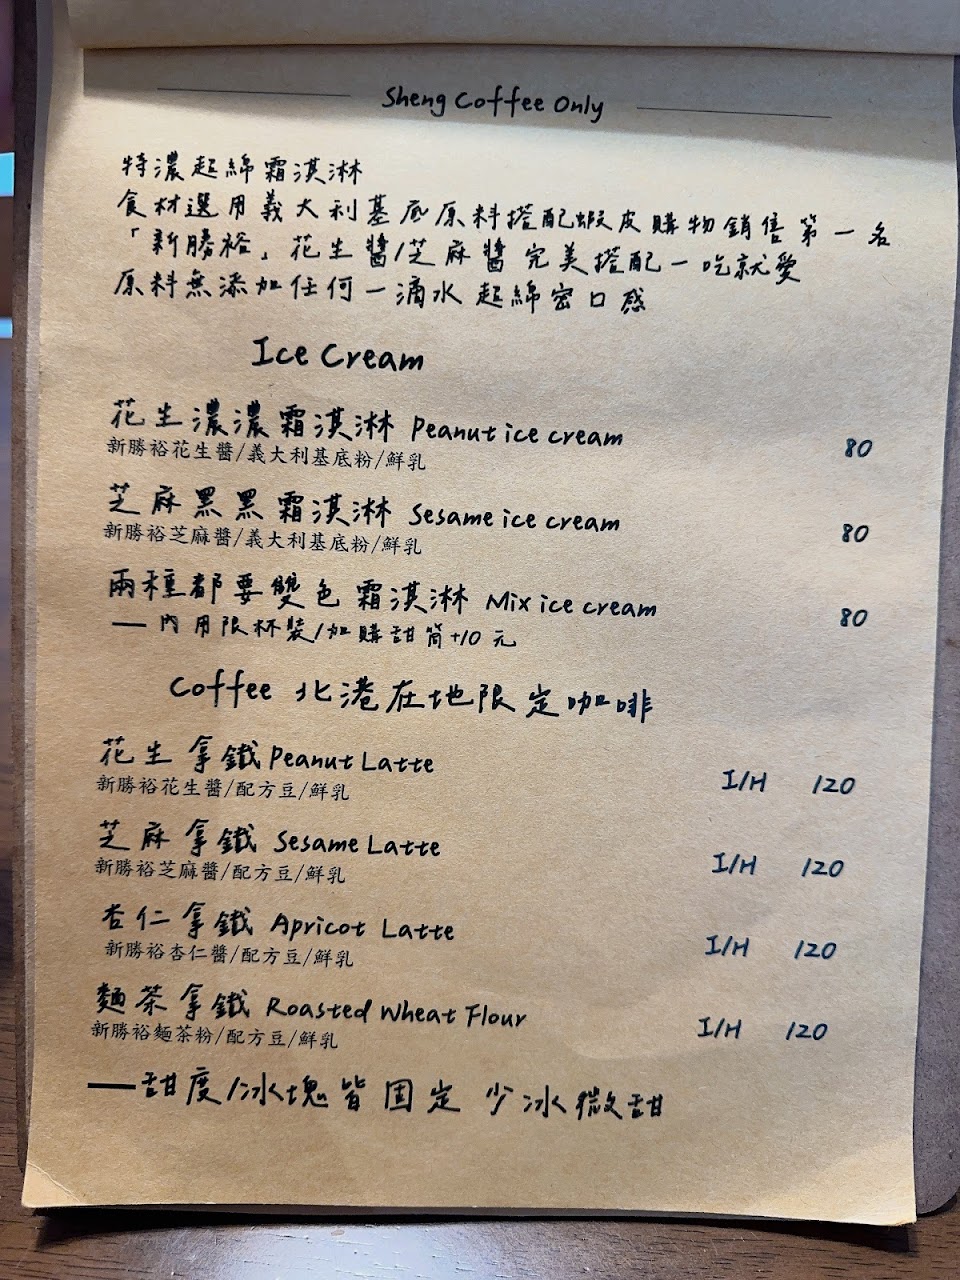 Sheng Coffee Only
特濃起綿霜淇淋
食材選用義大利基底原料搭配蝦皮購物銷售第一名
「新勝裕」花生醬/芝麻醬完美搭配一吃就愛
原料無添加任何一滴水 起綿密口感
Ice Cream
花生濃濃霜淇淋 Peanut ice cream 80
新勝裕花生醬/義大利基底粉/鮮乳
芝麻黑黑霜淇淋 Sesame ice cream 80
新勝裕芝麻醬/義大利基底粉/鮮乳
兩種都要雙色霜淇淋 Mix ice cream 80
一內用限杯裝/加購甜筒+10元
Coffee 北港在地限定咖啡
花生拿鐵 Peanut Latte I/H 120
新勝裕花生醬/配方豆/鮮乳
芝麻拿鐵 Sesame Latte I/H 120
新勝裕芝麻醬/配方豆/鮮乳
杏仁拿鐵 Apricot Latte I/H 120
新勝裕杏仁醬/配方豆/鮮乳
麵茶拿鐵 Roasted Wheat Flour I/H 120
新勝裕麵茶粉/配方豆/鮮乳
一甜度/冰塊皆固定 少冰微甜